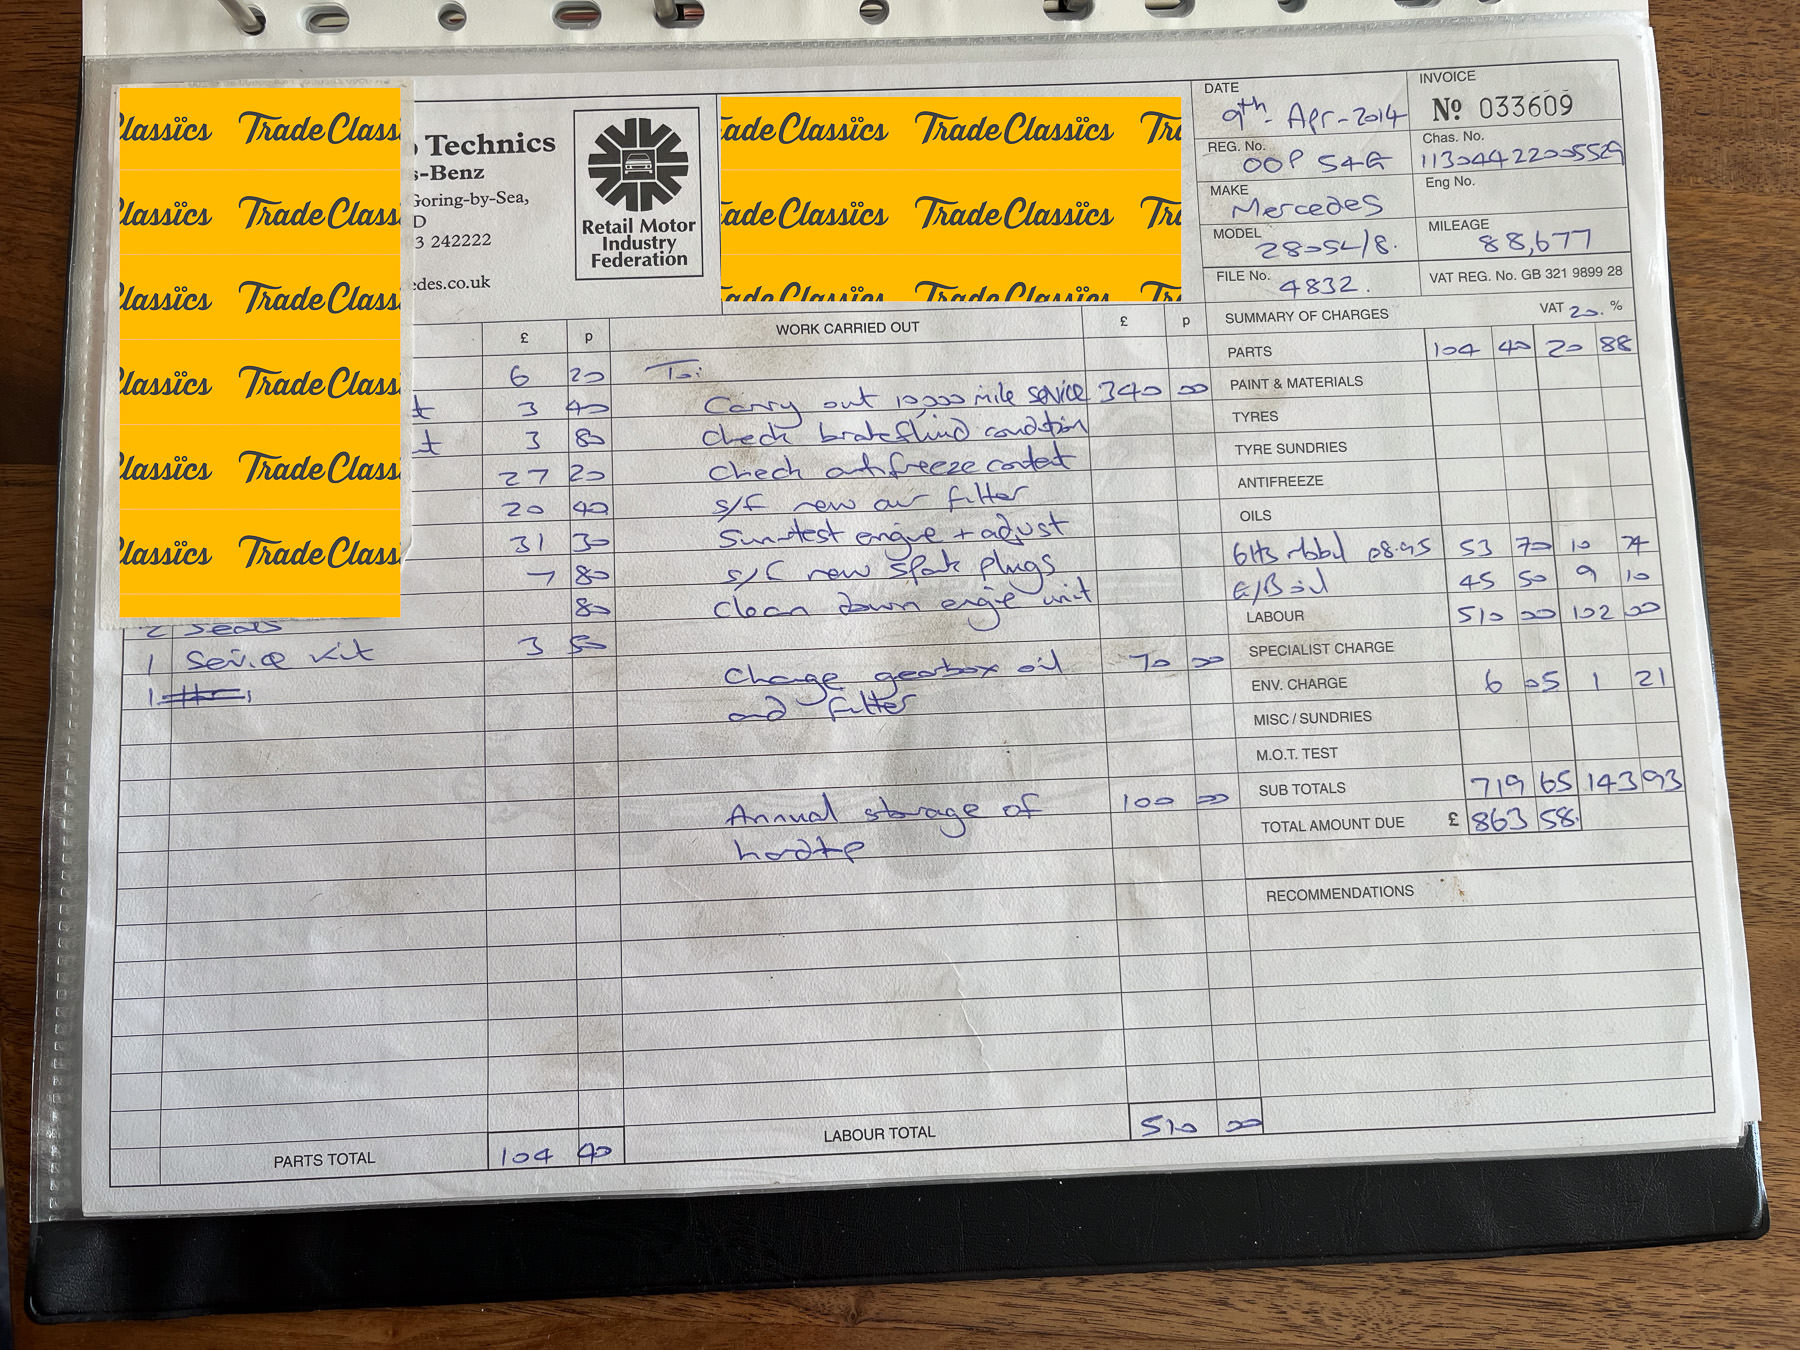 Classics Trade Classi
Classics Trade Classi
Classics Trade Classi
Classics Trade Classi
Classics Trade Classi
Classics Trade Classi
Technics
s-Benz
Goring-by-Sea,
D
3 242222
edes.co.uk
Retail Motor
Industry
Federation
ade Classics Trade Classics Tr
ade Classics Trade Classics Tr
ade Classics Trade Classics Tr
DATE 9th Apr-2014
INVOICE No 033609
REG. No. OOP 54G
Chas. No. 11304422005529
MAKE Mercedes
Eng No.
MODEL 280SL/8.
MILEAGE 88,677
FILE No. 4832.
VAT REG. No. GB 321 9899 28
£ p
6 20
t 3 40
t 3 80
27 20
20 40
31 30
7 80
80
2 Seals
1 Service kit 3 50
1
PARTS TOTAL 104 40
WORK CARRIED OUT £ p
To:
Carry out 10,000 mile service 340 00
Check brakefluid condition
Check antifreeze content
s/f new air filter
Sun-test engine + adjust
s/f new spark plugs
Clean down engine unit
Change gearbox oil 70 00
and filter
Annual storage of 100 00
hardtop
LABOUR TOTAL 510 00
SUMMARY OF CHARGES VAT 20. %
PARTS 104 40 20 88
PAINT & MATERIALS
TYRES
TYRE SUNDRIES
ANTIFREEZE
OILS
6 lts Mobil @8.95 53 70 10 74
G/B oil 45 50 9 10
LABOUR 510 00 102 00
SPECIALIST CHARGE
ENV. CHARGE 6 05 1 21
MISC / SUNDRIES
M.O.T. TEST
SUB TOTALS 719 65 143 93
TOTAL AMOUNT DUE £ 863 58.
RECOMMENDATIONS